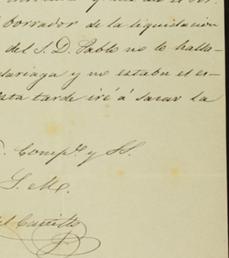 borrador de la liquidacion
del S. D. Pablo no lo hallo-
y no estaba el es-
tarde iré á sacar la
Comp.e y S.
S. M.
del Castillo